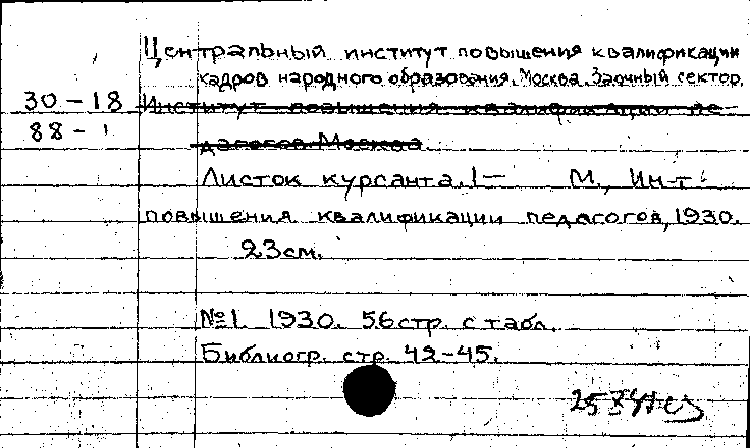 Центральный институт повышения квалификации
кадров народного образования. Москва. Заочный сектор.
30-18 Институт повышения квалификации пе-
88-1 дагогов. Москва
Листок курсанта. 1- М., Ин-т
повышения квалификации педагогов, 1930.
23см.
№1. 1930. 56стр. с табл.
Библиогр. стр. 42-45.